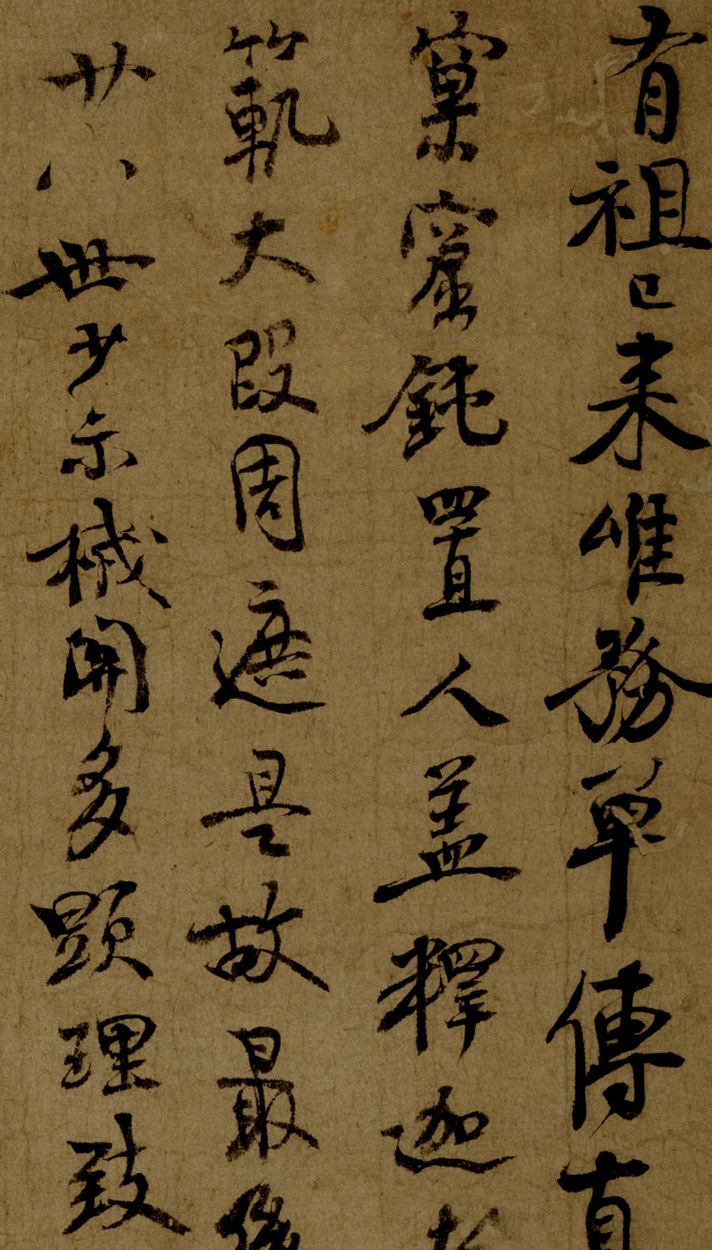 有祖已来唯務單傳直
窠窟鈍置人盖釋迦老
範軌大段周遮是故最後
廿八世少示機關多顯理致